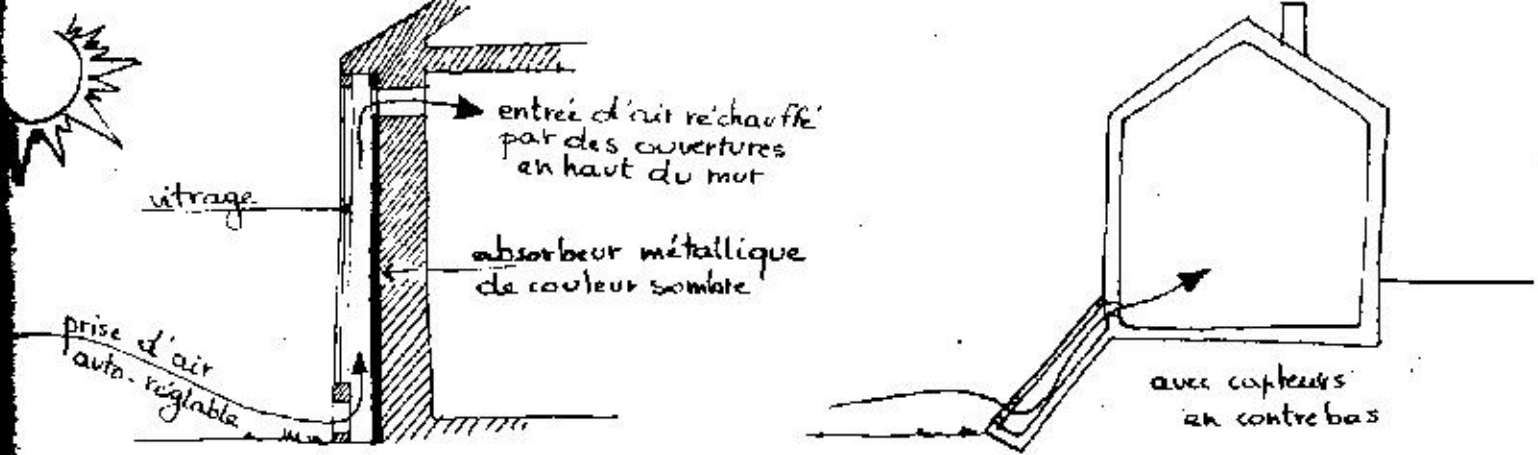 entrée d'air réchauffé
par des ouvertures
en haut du mur
vitrage
absorbeur métallique
de couleur sombre
prise d'air
auto-réglable
avec capteurs
en contrebas